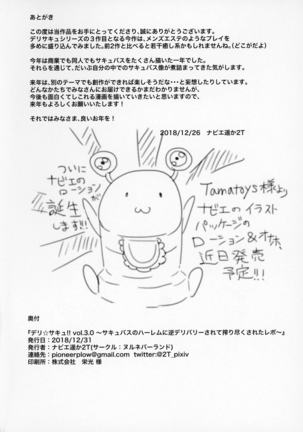 あとがき
この度は当作品をお手にとってくださり、誠にありがとうございます。
デリサキュシリーズの３作目となる今作は、メンズエステのようなプレイを
多めに盛り込んでみました。前２作と比べると若干癒し系かもしれませんね。（どこがだよ）
今年は商業でも同人でもサキュバスをたくさん描いた一年でした。
それらを通じて、だいぶ自分の中でのサキュバス像が煮詰まってきた気がします。
来年は、別のテーマでも創作ができれば楽しそうだな・・・と妄想したりしています。
どんなかたちでみなさんにお届けできるかまだわかりませんが、
今後も面白くてしこれる漫画を描いていきたいと思いますので、
来年もよろしくお願いいたします！
それではみなさま、良いお年を！
2018/12/26 ナビエ遥か2T
ついに
ナビエの
ローションが
誕生
します!!!
Tamatoys様より
ナビエのイラスト
パッケージの
ローション&オナホ、
近日発売
予定!!!
奥付
『デリ☆サキュ!! vol.3.0 ～サキュバスのハーレムに逆デリバリーされて搾り尽くされたレポ～』
発行日：2018/12/31
発行者：ナビエ遥か2T(サークル：ヌルネバーランド)
連絡先：pioneerplow@gmail.com twitter:@2T_pixiv
印刷所：株式会社 栄光 様